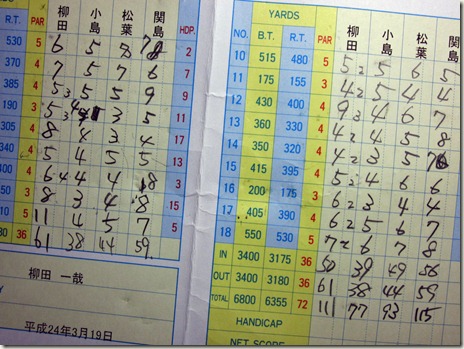 R.T. PAR 柳田 小島 松葉 関島 HDP.
530 5 6 5 8 2
370 4 7 5 7 6 7
385 4 5 3 5 5 9 9
190 3 5 3 3 5 11
305 4 8 4 3 4 17
340 4 5 4 5 5 13
400 4 6 4 4 4 8 3
50 3 8 3 4 8 15
5 11 4 5 7 5
80 36 61 38 44 59
柳田 一哉
平成24年3月19日
YARDS
NO. B.T. R.T. PAR 柳田 小島 松葉 関島
10 515 480 5 5 2 5 6 5
11 175 155 3 4 2 5 4 4
12 430 400 4 9 3 4 6 7
13 360 330 4 4 2 4 5 8
14 350 320 4 4 2 3 5
15 415 395 4 5 2 4 6 6
16 200 175 3 6 2 3 4 4
17 405 390 4 6 2 5 6 7
18 550 530 5 7 2 6 7 8
IN 3400 3175 36 50 39 49 56
OUT 3400 3180 36 61 38 44 59
TOTAL 6800 6355 72 111 77 93 115
HANDICAP
NET SCORE